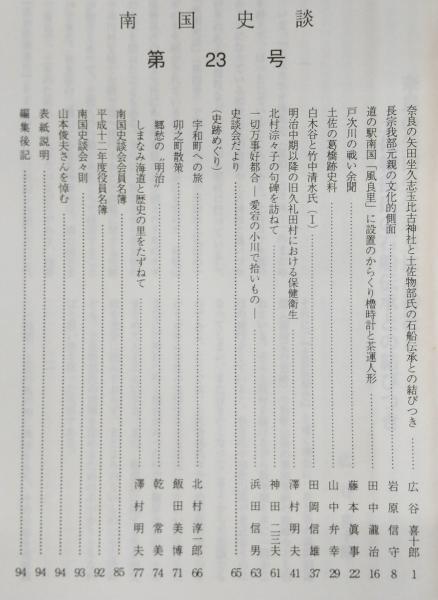 南国史談
第23号
奈良の矢田坐久志玉比古神社と土佐物部氏の石船伝承との結びつき……広谷喜十郎 1
長宗我部元親の文化的側面……岩原信守 8
道の駅南国「風良里」に設置のからくり櫓時計と茶運人形……田中瀧治 16
戸次川の戦い余聞……藤本眞事 22
土佐の葛橋跡史料……山中弁幸 29
白木谷と竹中清水氏(1)……田岡信雄 37
明治中期以降の旧久礼田村における保健衛生……澤村明夫 41
北村淙々子の句碑を訪ねて……神田二三夫 61
一切万事好都合―愛宕の小川で拾いもの―……浜田信男 63
史談会だより……65
(史跡めぐり)
宇和町への旅……北村淳一郎 66
卯之町散策……飯田美博 71
郷愁の〝明治〟……乾常美 74
しまなみ海道と歴史の里をたずねて……澤村明夫 77
南国史談会会員名簿……85
平成十二年度役員名簿……92
南国史談会々則……93
山本俊夫さんを悼む……94
表紙説明……94
編集後記……94